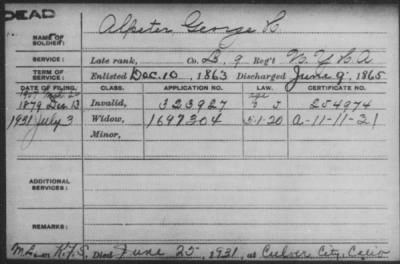 DEAD
NAME OF SOLDIER: Alpeter George B.
SERVICE: Late rank, Co. L, 9 Reg't N.Y.H.A
TERM OF SERVICE: Enlisted Dec. 10, 1863 Discharged June 9, 1865
DATE OF FILING. CLASS. APPLICATION NO. LAW. CERTIFICATE NO.
1879 Dec. 13 Invalid, 323927 254974
1931 July 3 Widow, 1697304 5-1-20 A-11-11-21
Minor,
ADDITIONAL SERVICES:
REMARKS:
Died June 25, 1931, at Culver City, Calif